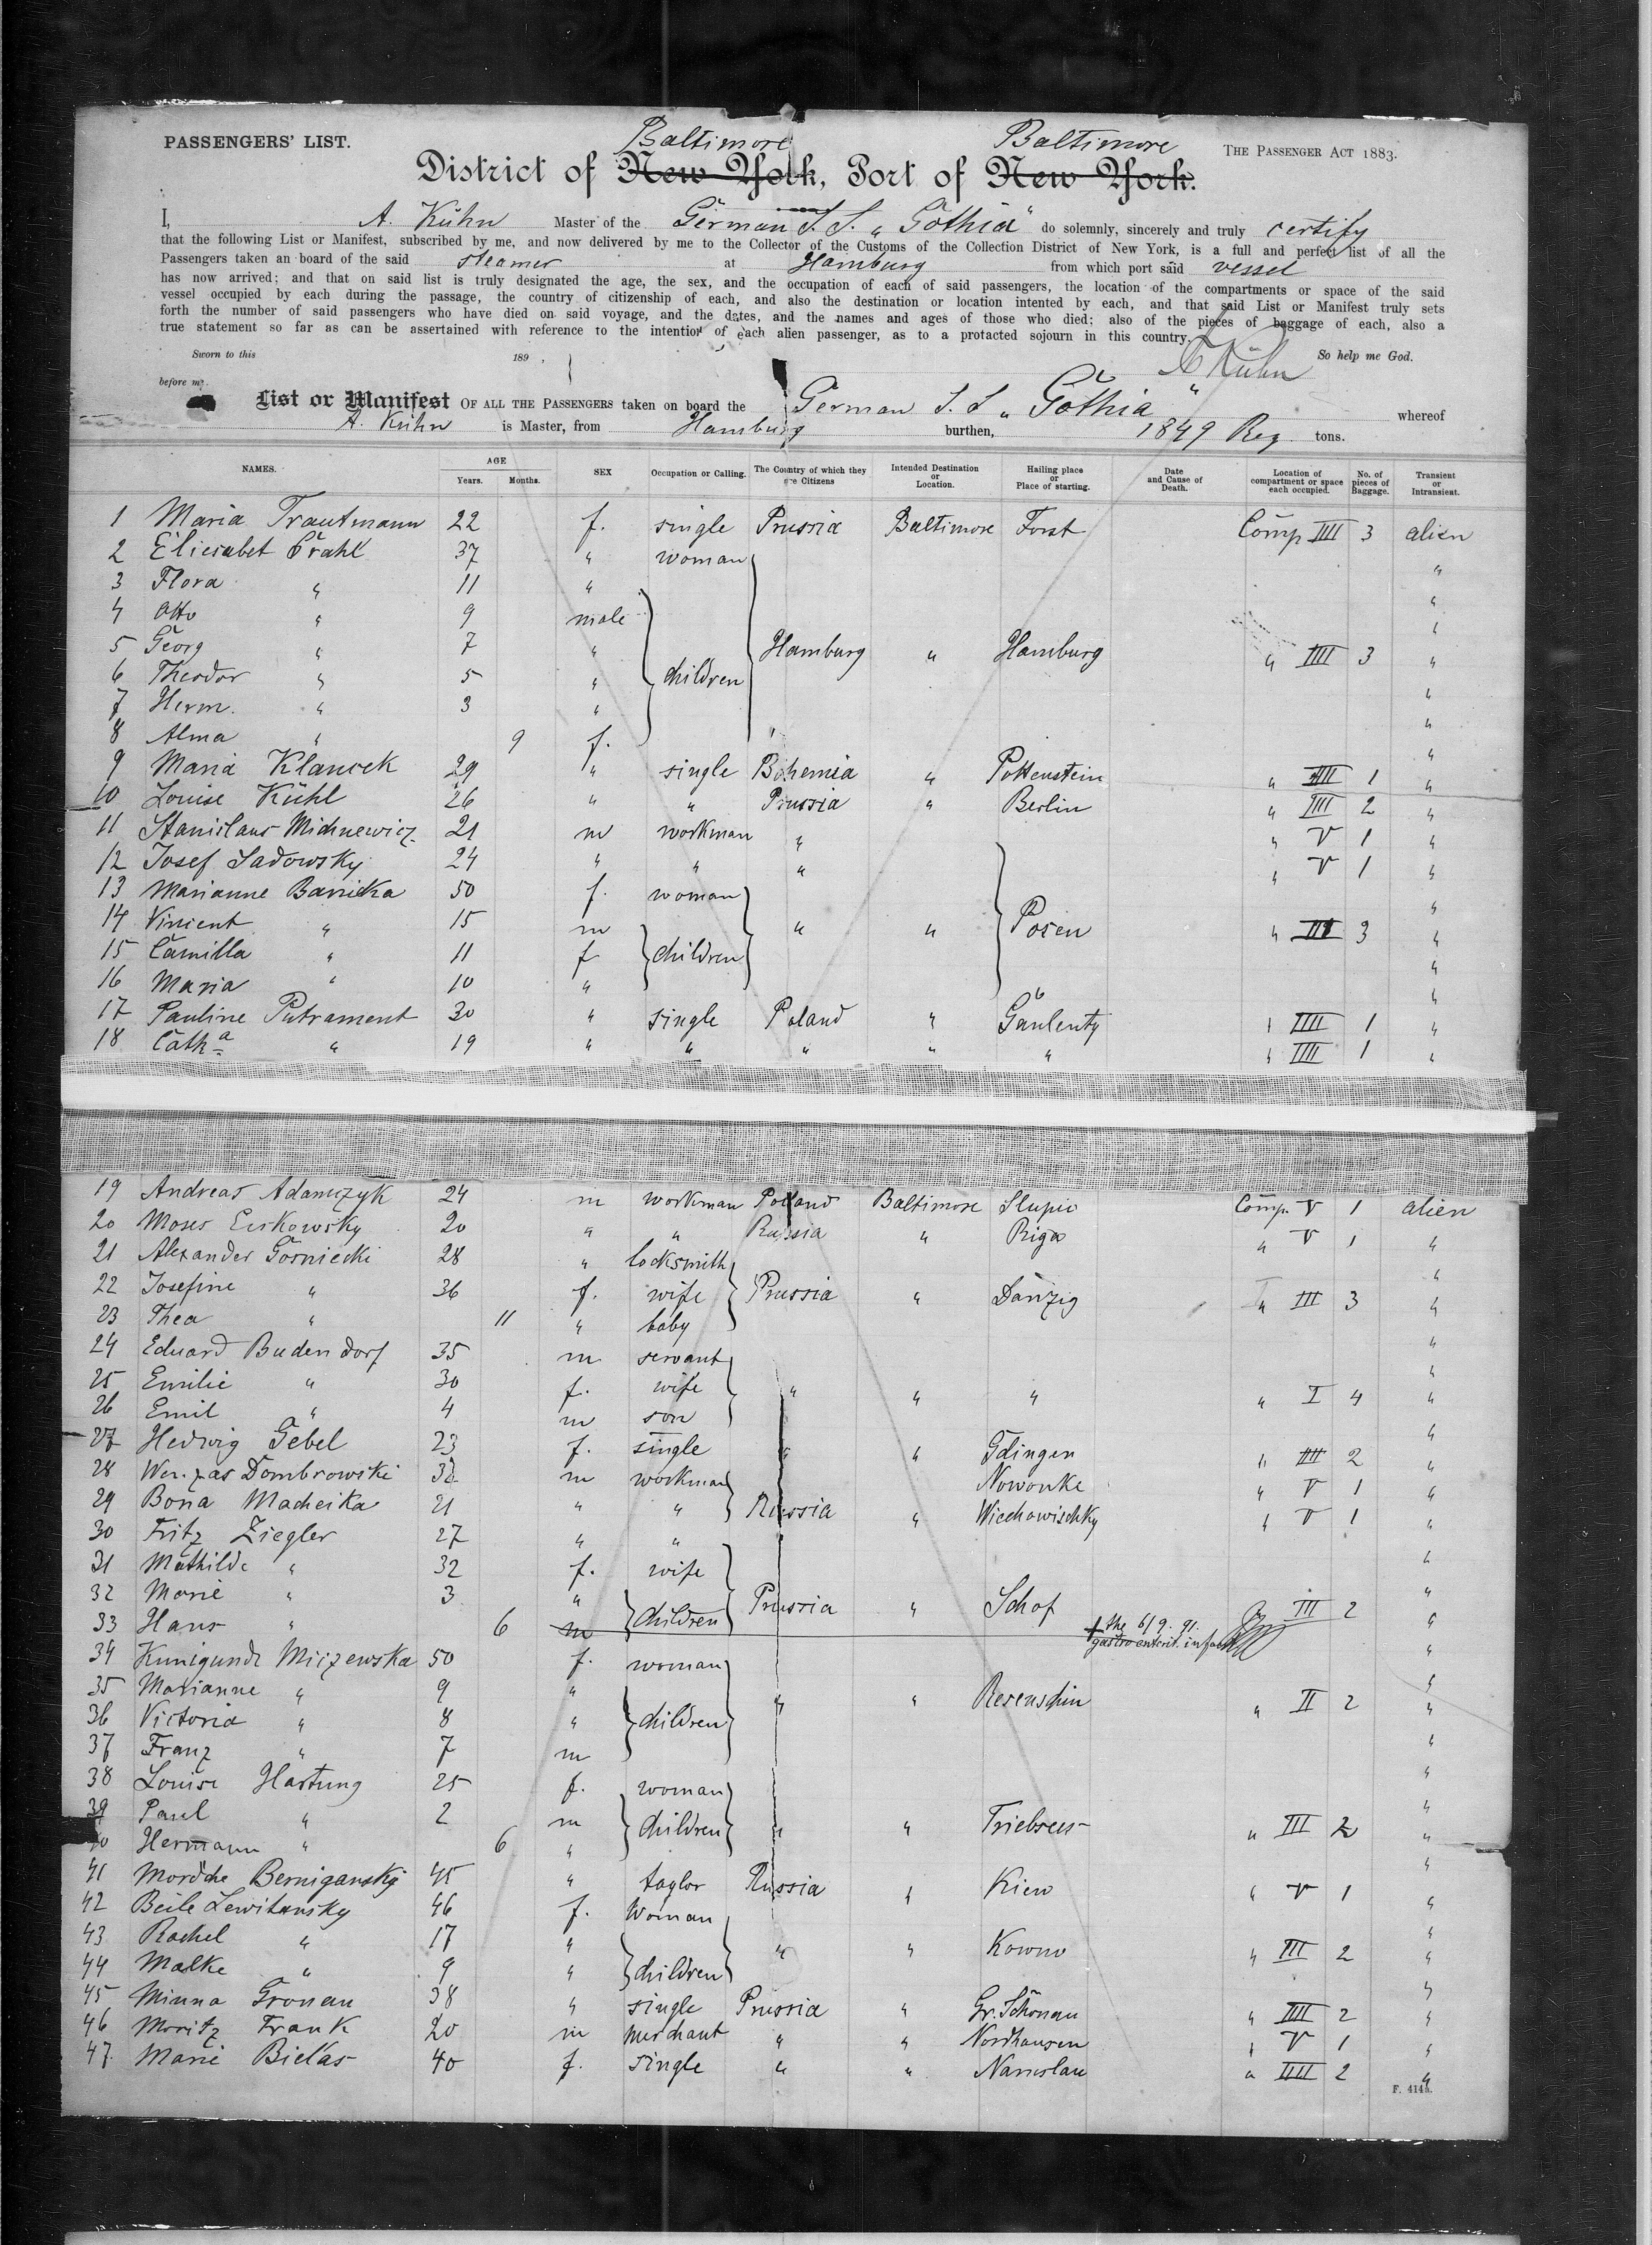 PASSENGERS' LIST.
Baltimore Baltimore
THE PASSENGER ACT 1883.
District of New York, Port of New York.
I, A. Kühn Master of the German S.S. „Gothia" do solemnly, sincerely and truly certify
that the following List or Manifest, subscribed by me, and now delivered by me to the Collector of the Customs of the Collection District of New York, is a full and perfect list of all the
Passengers taken an board of the said steamer at Hamburg from which port said vessel
has now arrived; and that on said list is truly designated the age, the sex, and the occupation of each of said passengers, the location of the compartments or space of the said
vessel occupied by each during the passage, the country of citizenship of each, and also the destination or location intented by each, and that said List or Manifest truly sets
forth the number of said passengers who have died on said voyage, and the dates, and the names and ages of those who died; also of the pieces of baggage of each, also a
true statement so far as can be assertained with reference to the intention of each alien passenger, as to a protacted sojourn in this country.
Sworn to this 189 . A Kühn So help me God.
before me
List or Manifest OF ALL THE PASSENGERS taken on board the German S.S „Gothia" whereof
A. Kühn is Master, from Hamburg burthen, 1849 Reg tons.
NAMES. AGE Years. Months. SEX Occupation or Calling. The Country of which they are Citizens Intended Destination or Location. Hailing place or Place of starting. Date and Cause of Death. Location of compartment or space each occupied. No. of pieces of Baggage. Transient or Intransient.
1 Maria Trautmann 22 f. single Prussia Baltimore Forst Comp IIII 3 alien
2 Eliesabet Prahl 37 " woman "
3 Flora " 11 " "
4 Otto " 9 male "
5 Georg " 7 " Hamburg " Hamburg " IIII 3 "
6 Theodor " 5 " children "
7 Herm. " 3 " "
8 Alma " 9 f. "
9 Maria Klancek 29 " single Bohemia " Pottenstein " IIII 1 "
10 Louise Kühl 26 " " Prussia " Berlin " IIII 2 "
11 Stanislaus Michnewicz 21 m workman " " V 1 "
12 Josef Sadowsky 24 " " " " V 1 "
13 Marianne Banicka 50 f. woman "
14 Vincent " 15 m " " Posen " III 3 "
15 Camilla " 11 f children "
16 Maria " 10 " "
17 Pauline Putrament 30 " single Poland " Gaulenty " IIII 1 "
18 Cath.a " 19 " " " " " " IIII 1 "
19 Andreas Adamczyk 24 m workman Poland Baltimore Slupio Comp. V 1 alien
20 Moses Eiskowsky 20 " " Russia " Riga " V 1 "
21 Alexander Gosniecki 28 " locksmith "
22 Josefine " 36 f. wife Prussia " Danzig " III 3 "
23 Thea " 11 " baby "
24 Eduard Budendorf 35 m servant "
25 Emilie " 30 f. wife " " " " I 4 "
26 Emil " 4 m son "
27 Hedwig Gebel 23 f. single " " Gdingen " IIII 2 "
28 Dombrowski m workman Nowonke " V 1 "
29 Bona Macheika 21 " " Russia " Wiechowischky " V 1 "
30 Fritz Ziegler 27 " " "
31 Mathilde " 32 f. wife "
32 Marie " 3 " Prussia " Schof III 2 "
33 Hans " 6 m children † the 6/9. 91. gastro enterit. infant
34 Kunigunde Miczewska 50 f. woman "
35 Marianne " 9 " " " Resenschin " II 2 "
36 Victoria " 8 " children "
37 Franz " 7 m "
38 Louise Hartung 25 f. woman "
39 Paul " 2 m children " " Triebsees " III 2 "
40 Hermann " 6 " "
41 Mordche Bernigansky 45 " taylor Russia " Kiew " V 1 "
42 Beile Lewitansky 46 f. Woman "
43 Rachel " 17 " " " Kowno " III 2 "
44 Malke " 9 " children "
45 Minna Gronau 38 " single Prussia " Gr. Schönau " IIII 2 "
46 Moritz Frank 20 m merchant " " Nordhausen " V 1 "
47. Marie Bielas 40 f. single " " Namslau " IIII 2 "
F. 414a.